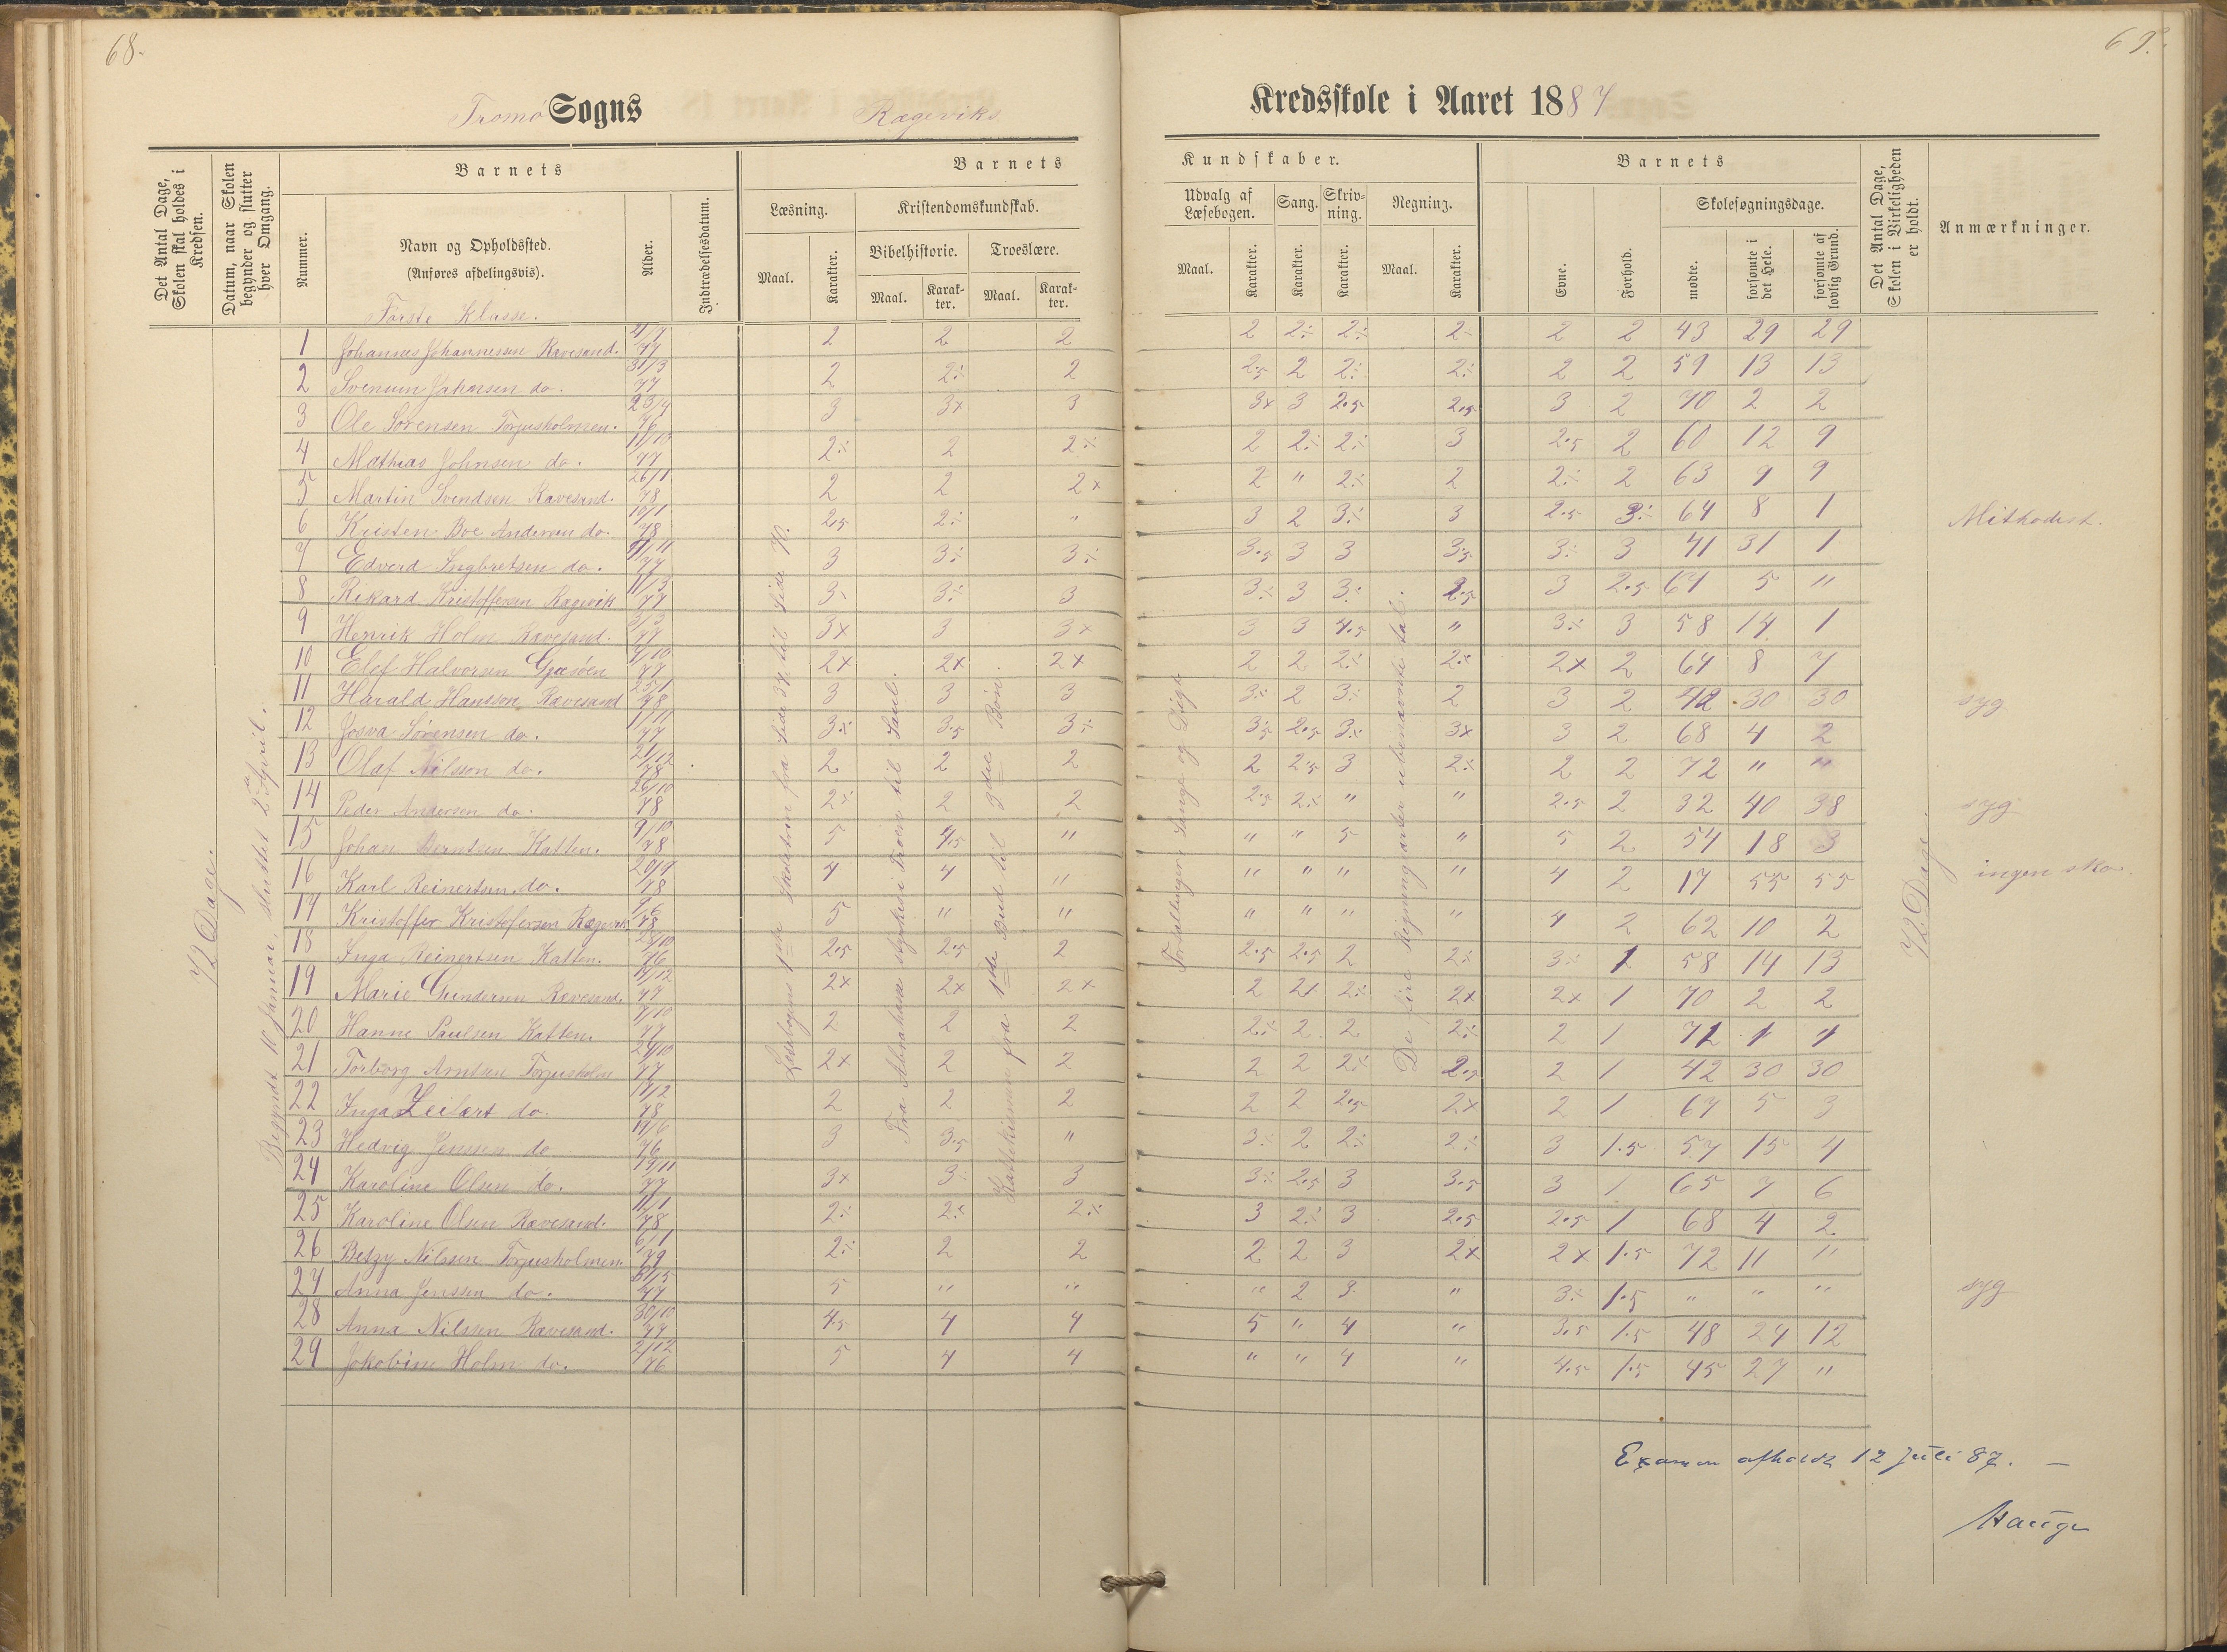 68.
69.
Tromø Sogns Rægeviks Kredsskole i Aaret 1887
Det Antal Dage, Skolen skal holdes i Kredsen.
Datum, naar Skolen begynder og slutter hver Omgang.
Barnets
Nummer.
Navn og Opholdssted.
(Anføres afdelingsvis).
Alder.
Indtrædelsesdatum.
Barnets Kundskaber.
Læsning.
Maal.
Karakter.
Kristendomskundskab.
Bibelhistorie.
Maal.
Karakter.
Troeslære.
Maal.
Karakter.
Udvalg af Læsebogen.
Maal.
Karakter.
Sang.
Karakter.
Skrivning.
Karakter.
Regning.
Maal.
Karakter.
Barnets
Evne.
Forhold.
Skolesøgningsdage.
mødte.
forsømte i det Hele.
forsømte af lovlig Grund.
Det Antal Dage, Skolen i Virkeligheden er holdt.
Anmærkninger.
Første Klasse.
72 Dage.
Begyndt 10 Januar, sluttet 2 April.
Læsebogens 1ste Skoletrin fra Side 34 til Side 70.
Fra Abrahams styrkes i Troen til Saul.
Katekismen fra 1ste Bud til 3die Bøn
Fortællinger Sange og Digt
De fire Regningsarter i ubenævnte tal.
72 Dage.
1 Johannes Johannessen Ravesand. 4/7 77 2 2 2 2 2÷ 2÷ 2÷ 2 2 43 29 29
2 Svensum Johnsen do. 31/3 77 2 2÷ 2 2.5 2 2÷ 2÷ 2 2 59 13 13
3 Ole Sørensen Torjusholmen. 23/9 76 3 3x 3 3x 3 2.5 2.5 3 2 70 2 2
4 Mathias Johnsen do. 11/10 77 2÷ 2 2÷ 2 2÷ 2÷ 3 2.5 2 60 12 9
5 Martin Svendsen Ravesand. 26/1 78 2 2 2x 2 " 2÷ 2 2÷ 2 63 9 9
6 Kristen Boe Andersen do. 10/1 78 2.5 2÷ " 3 2 3÷ 3 2.5 3÷ 64 8 1 Mithodist.
7 Edverd Ingbretsen do. 9/11 77 3 3÷ 3÷ 3.5 3 3 3.5 3÷ 3 41 31 1
8 Rikard Kristoffersen Rægevik 11/3 77 3÷ 3÷ 3 3÷ 3 3÷ 2.5 3 2.5 67 5 "
9 Henrik Holm Ravesand. 3/3 77 3x 3 3x 3 3 4.5 " 3÷ 3 58 14 1
10 Elef Halvorsen Gjæsøen 4/10 77 2x 2x 2x 2 2 2÷ 2÷ 2x 2 64 8 7
11 Harald Hansson Ravesand 25/1 78 3 3 3 3÷ 2 3÷ 2 3 2 42 30 30 syg
12 Josva Sørensen do. 1/11 77 3÷ 3.5 3÷ 3.5 2.5 3÷ 3x 3 2 68 4 2
13 Olaf Nilsson do. 21/12 78 2 2 2 2 2.5 3 2÷ 2 2 72 " "
14 Peder Andersen do. 26/10 78 2÷ 2 2 2.5 2÷ " " 2.5 2 32 40 38 syg
15 Johan Berntsen Katten. 9/10 78 5 4.5 " " " 5 " 5 2 54 18 3
16 Karl Reinertsen do. 20/9 78 4 4 " " " " " 4 2 17 55 55 ingen sko
17 Kristoffer Kristofersen Rægevik 78 5 " " " " " " 4 2 62 10 2
18 Inga Reinertsen Katten. 76 2.5 2.5 2 2.5 2.5 2 2÷ 3÷ 1 58 14 13
19 Marie Gundersen Ravesand. 77 2x 2x 2x 2 2÷ 2÷ 2x 2x 1 70 2 2
20 Hanne Paulsen Katten. 7/10 77 2 2 2 2÷ 2 2 2÷ 2 1 71 1 1
21 Torborg Arntsen Torjusholm 24/10 77 2x 2 2 2 2 2÷ 2.5 2 1 42 30 30
22 Inga Leifært do. 11/2 78 2 2 2 2 2 2.5 2x 2 1 67 5 3
23 Hedvig Jenssen do 19/6 76 3 3.5 " 3÷ 2 2÷ 2÷ 3 1.5 57 15 4
24 Karoline Olsen do. 77 3x 3÷ 3 3÷ 2.5 3 3.5 3 1 65 7 6
25 Karoline Olsen Ravesand. 11/1 78 2÷ 2÷ 2÷ 3 2÷ 3 2.5 2.5 1 68 4 2
26 Betzy Nilssen Torjusholmen. 6/1 79 2÷ 2 2 2 2 3 2x 2x 1.5 72 " "
27 Anna Jenssen do. 31/5 77 5 " " " 2 3 " 3÷ 1.5 " " " syg
28 Anna Nilssen Ravesand. 30/10 77 4.5 4 4 5 " 4 " 3.5 1.5 48 24 12
29 Jokobine Holm do. 2/12 76 5 4 4 " " 4 " 4.5 1.5 45 27 "
Examen afholdt 12 Juli 87. —
Hauge